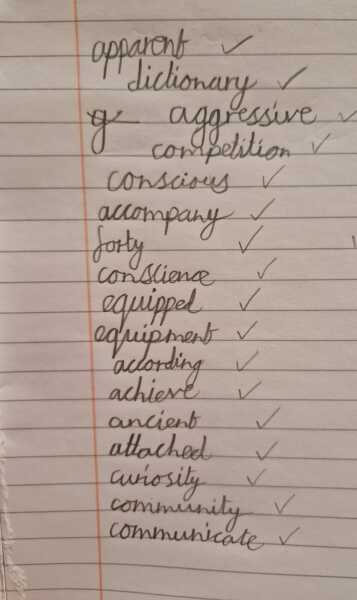 apparent ✓
dictionary ✓
aggressive ✓
competition ✓
conscious ✓
accompany ✓
forty ✓
conscience ✓
equipped ✓
equipment ✓
according ✓
achieve ✓
ancient ✓
attached ✓
curiosity ✓
community ✓
communicate ✓